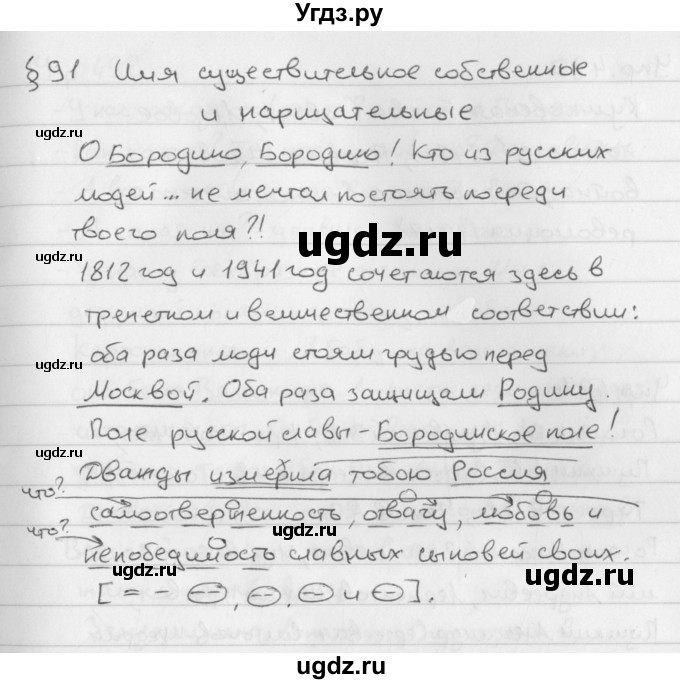 Угдз.ру
§ 91 Имя существительное собственные
и нарицательные
О Бородино, Бородино! Кто из русских
людей... не мечтал постоять посреди
твоего поля?!
1812 год и 1941 год сочетаются здесь в
трепетном и величественном соответствии:
оба раза люди стояли грудью перед
Москвой. Оба раза защищали Родину.
Поле русской славы Бородинское поле!
Дважды измерила тобою Россия
что?
самоотверженность, отвагу, любовь и
что?
непобедимость славных сыновей своих.
[= – ⊖, ⊖, ⊖ и ⊖].
ugdz.ru
ugdz.ru
ugdz.ru
ugdz.ru
ugdz.ru
ugdz.ru
ugdz.ru
ugdz.ru
ugdz.ru